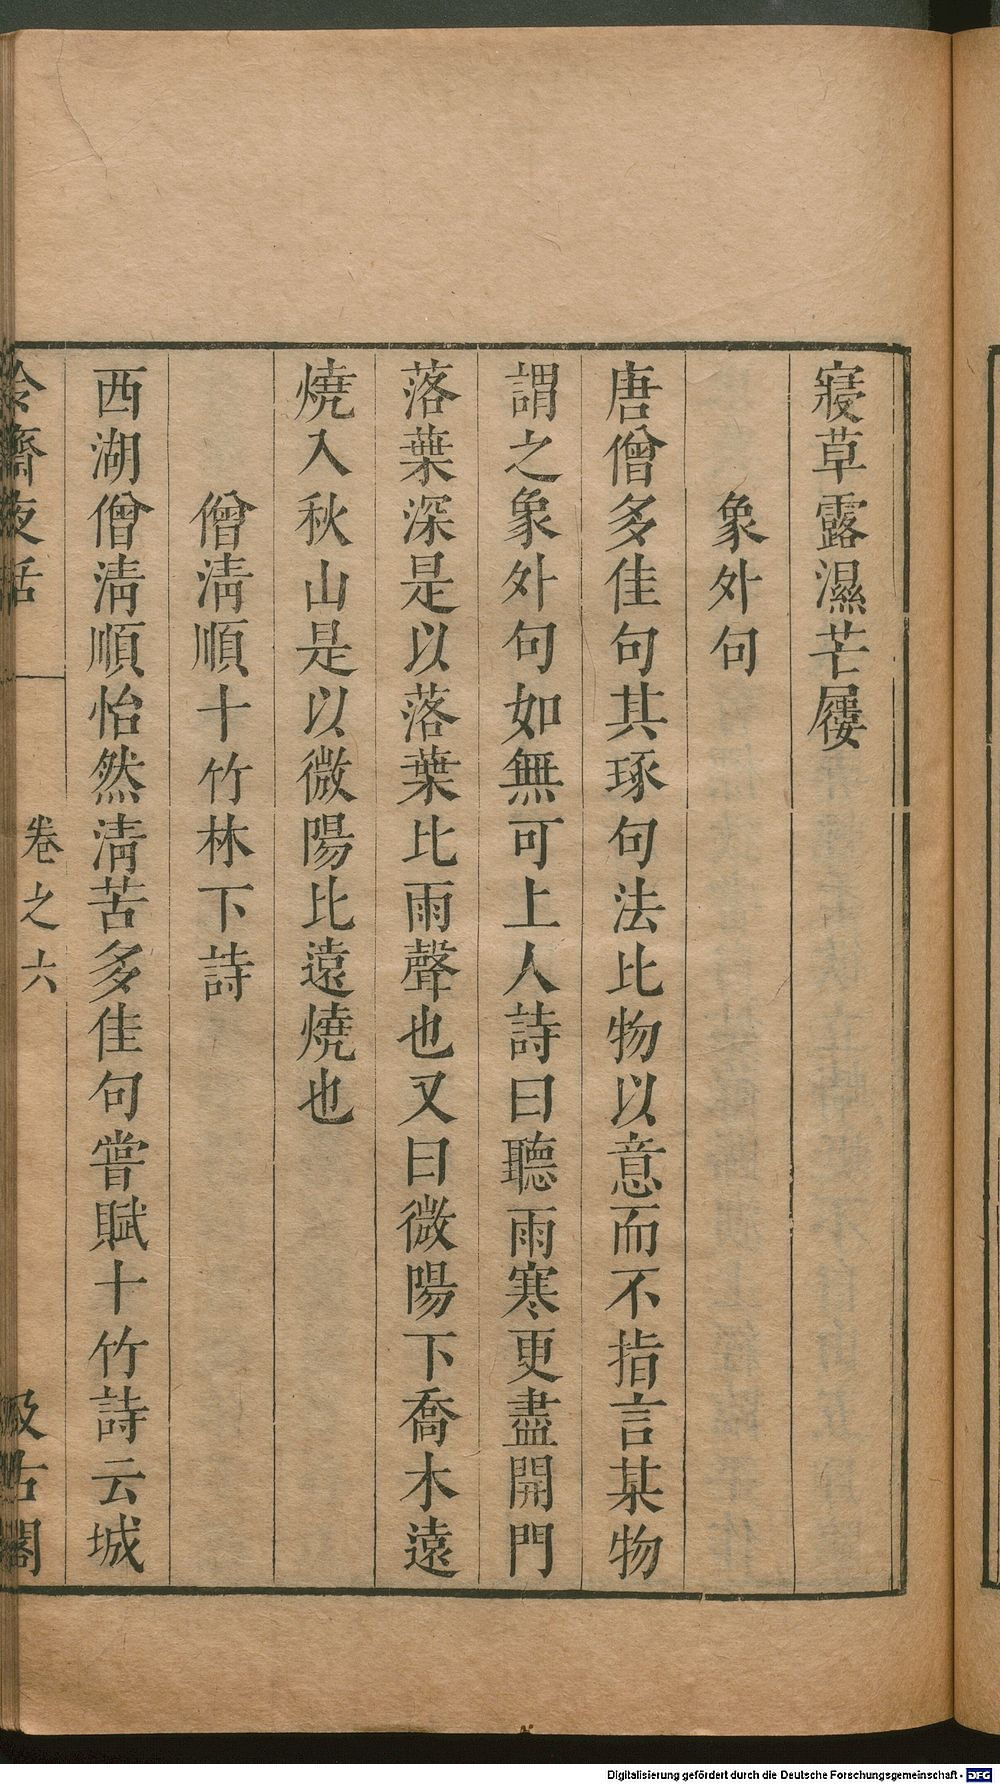 寑草露濕芒屨
象外句
唐僧多佳句其琢句法比物以意而不指言某物
謂之象外句如無可上人詩曰聽雨寒更盡開門
落葉深是以落葉比雨聲也又曰微陽下喬木遠
燒入秋山是以微陽比遠燒也
僧淸順十竹林下詩
西湖僧淸順怡然淸苦多佳句嘗賦十竹詩云城
冷齋夜話 卷之六 汲古閣
Digitalisierung gefördert durch die Deutsche Forschungsgemeinschaft - DFG